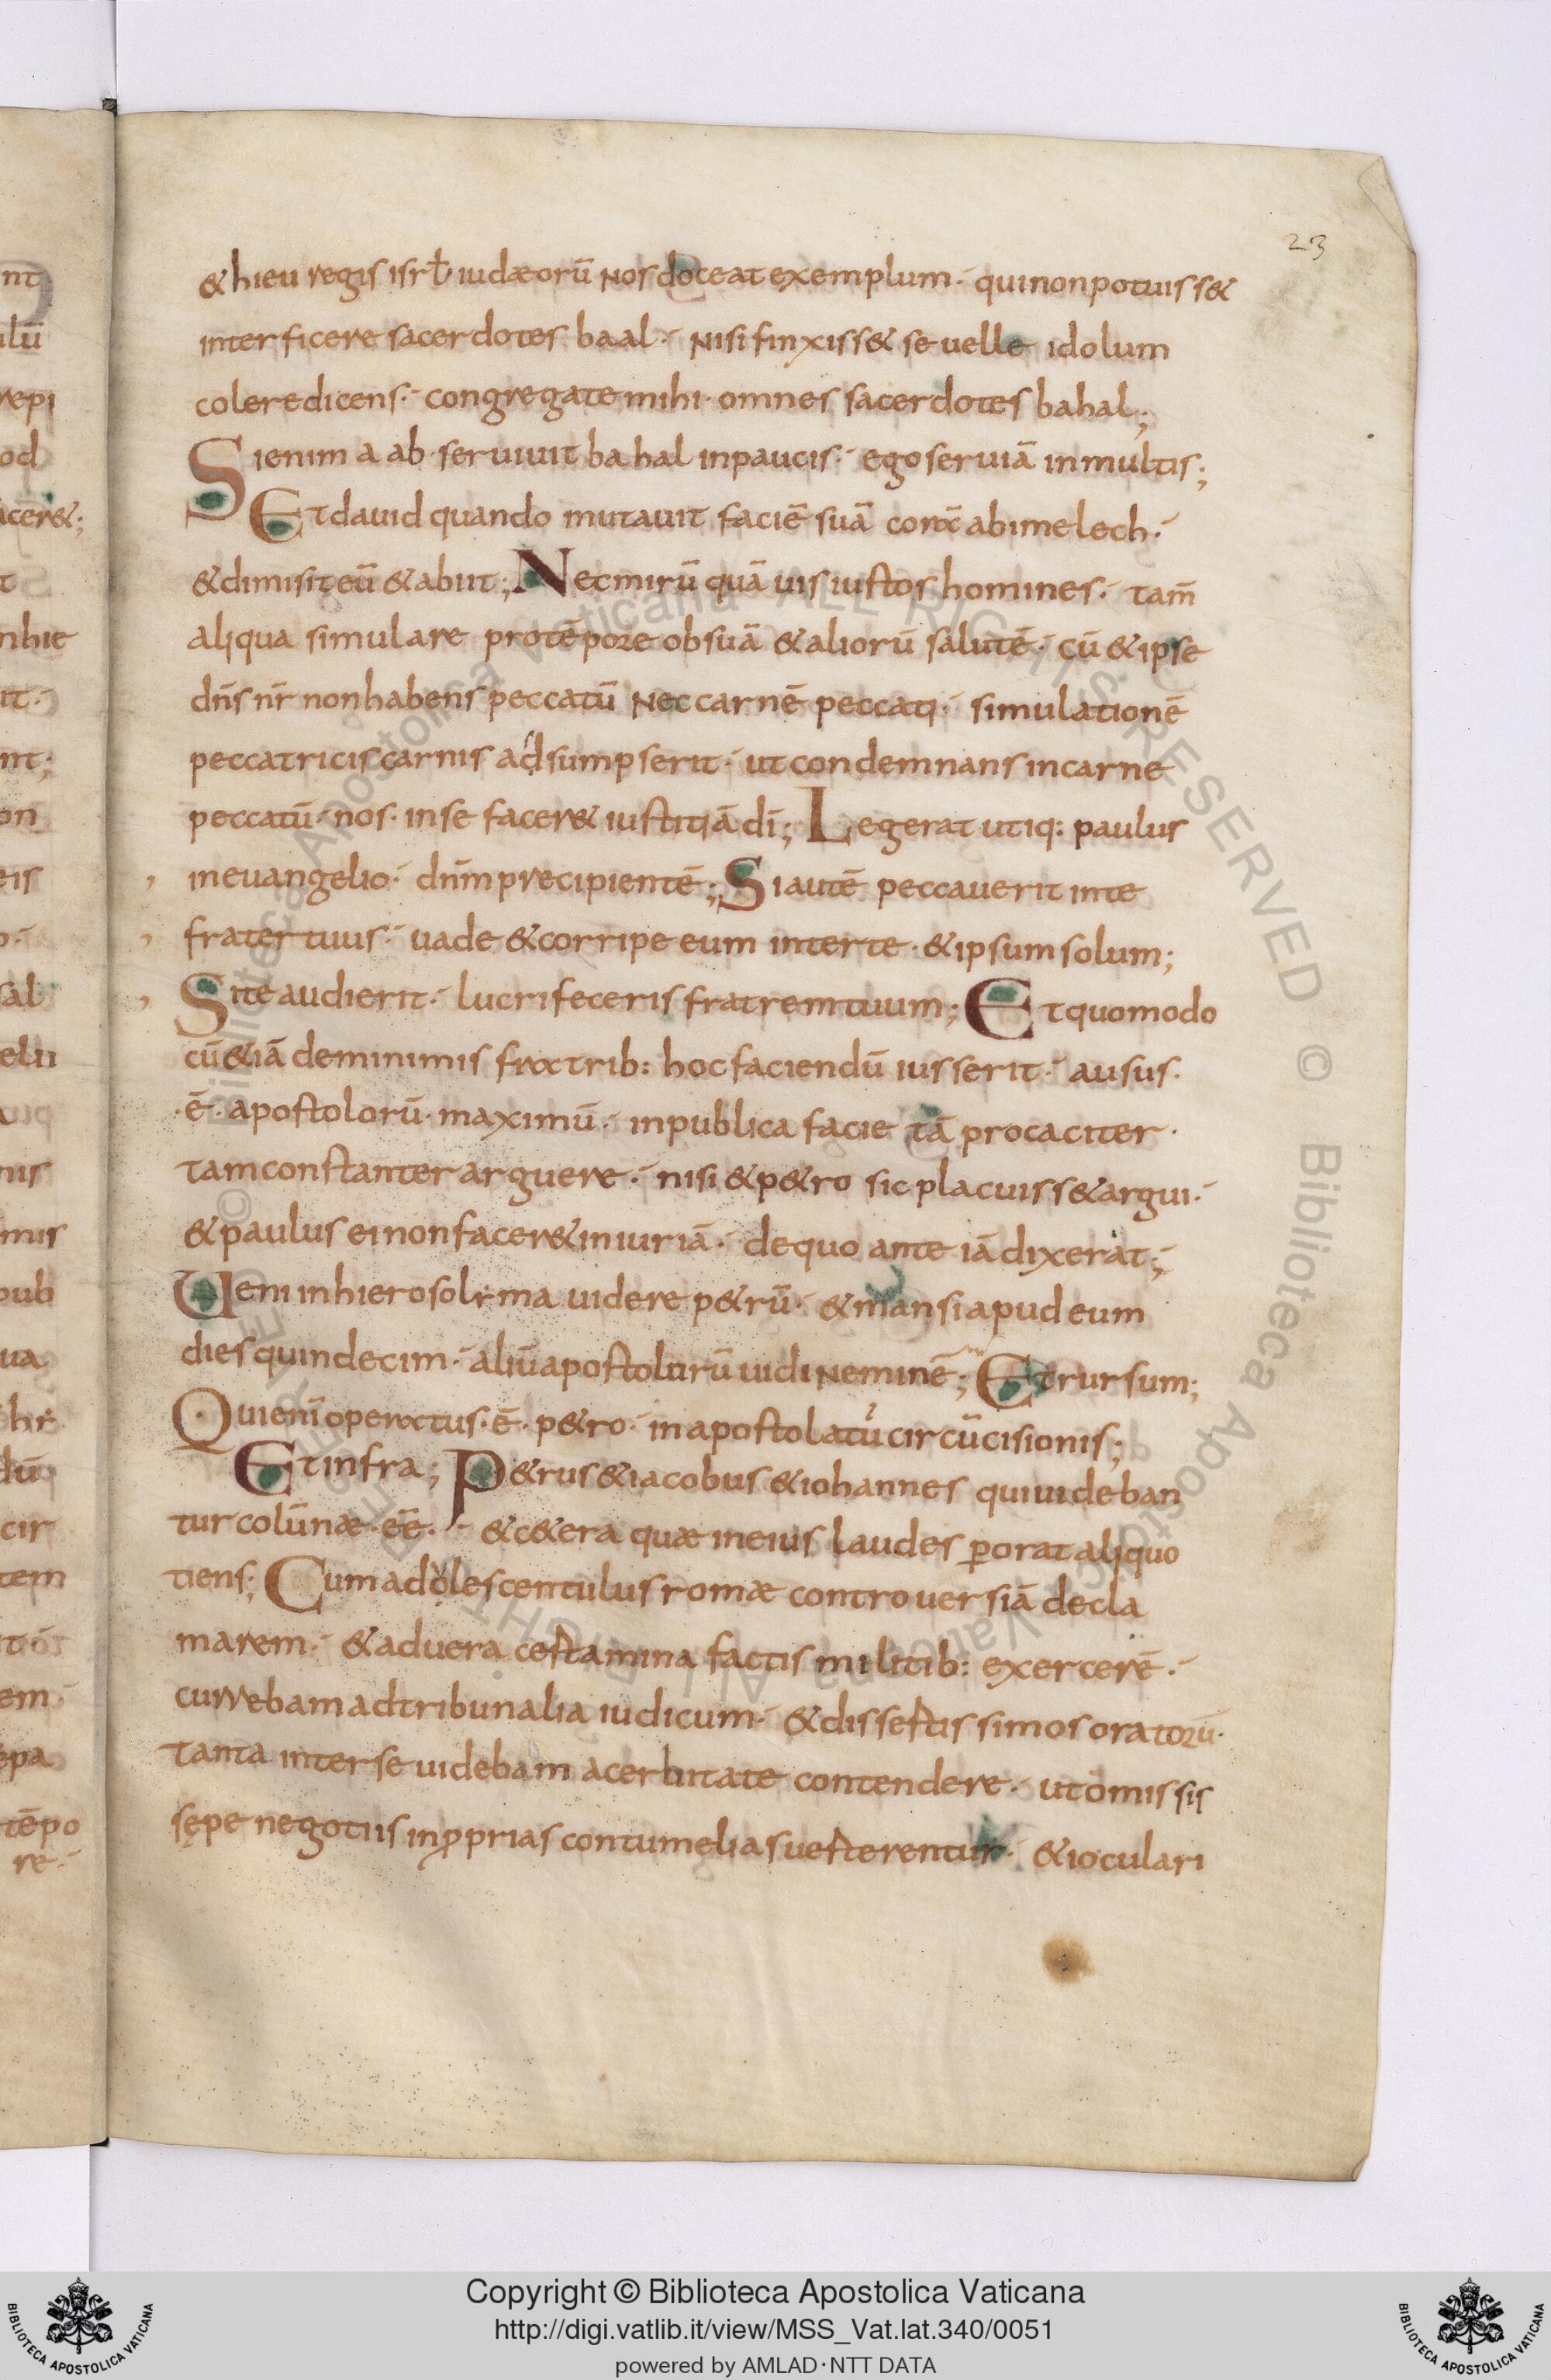 23
& hieu regis isrł iudæorū nos doceat exemplum· qui non potuiss&
interficere sacerdotes baal· nisi finxiss& se uelle idolum
colere dicens· congregate mihi· omnes sacerdotes bahal;
Si enim a ab· seruiuit bahal in paucis· ego seruiā in multis;
Et dauid quando mutauit faciē suā corā abimelech·
& dimisit eū & abiit; Nec mirū quā uis iustos homines· tam̄
aliqua simulare pro tēpore ob suā & aliorū salutē· cū & ipse
dn̄s nr̄ non habens peccatū nec carnē peccati· simulationē
peccatricis carnis adsumpserit· ut condemnans in carne
peccatū· nos· in se facer& iustitiā dī; Legerat utiq: paulus
in euangelio· dn̄m precipientē; Si autē peccauerit in te
frater tuus· uade & corripe eum inter te· & ipsum solum;
Si te audierit· lucri feceris fratrem tuum; Et quomodo
cū &iā de minimis fratrib: hoc faciendū iusserit· ausus·
·ē· apostolorū· maximū· in publica facie tā procaciter·
tam constanter arguere· nisi & p&ro sic placuiss& argui·
& paulus ei non facer& iniuriā· de quo ante iā dixerat;
Veni in hierosolyma uidere p&rū· & mansi apud eum
dies quindecim· aliū apostolurū uidi neminē; Et rursum;
Qui enī operatus·ē· p&ro· in apostolatū circūcisionis;
Et infra; P&rus & iacobus & iohannes qui uideban
tur colūnæ·eē· & c&era quæ in eius laudes ꝑorat aliquo
tiens; Cum adolescentulus romæ controuersiā decla
marem· & ad uera certamina factis militib: exercerē·
currebam ad tribunalia iudicum· & dissertissimos oratorū·
tanta inter se uidebam acerbitate contendere· ut omissis
sępe negotiis in ꝓprias contumelias uerterentur· & ioculari
Copyright © Biblioteca Apostolica Vaticana
http://digi.vatlib.it/view/MSS_Vat.lat.340/0051
powered by AMLAD·NTT DATA